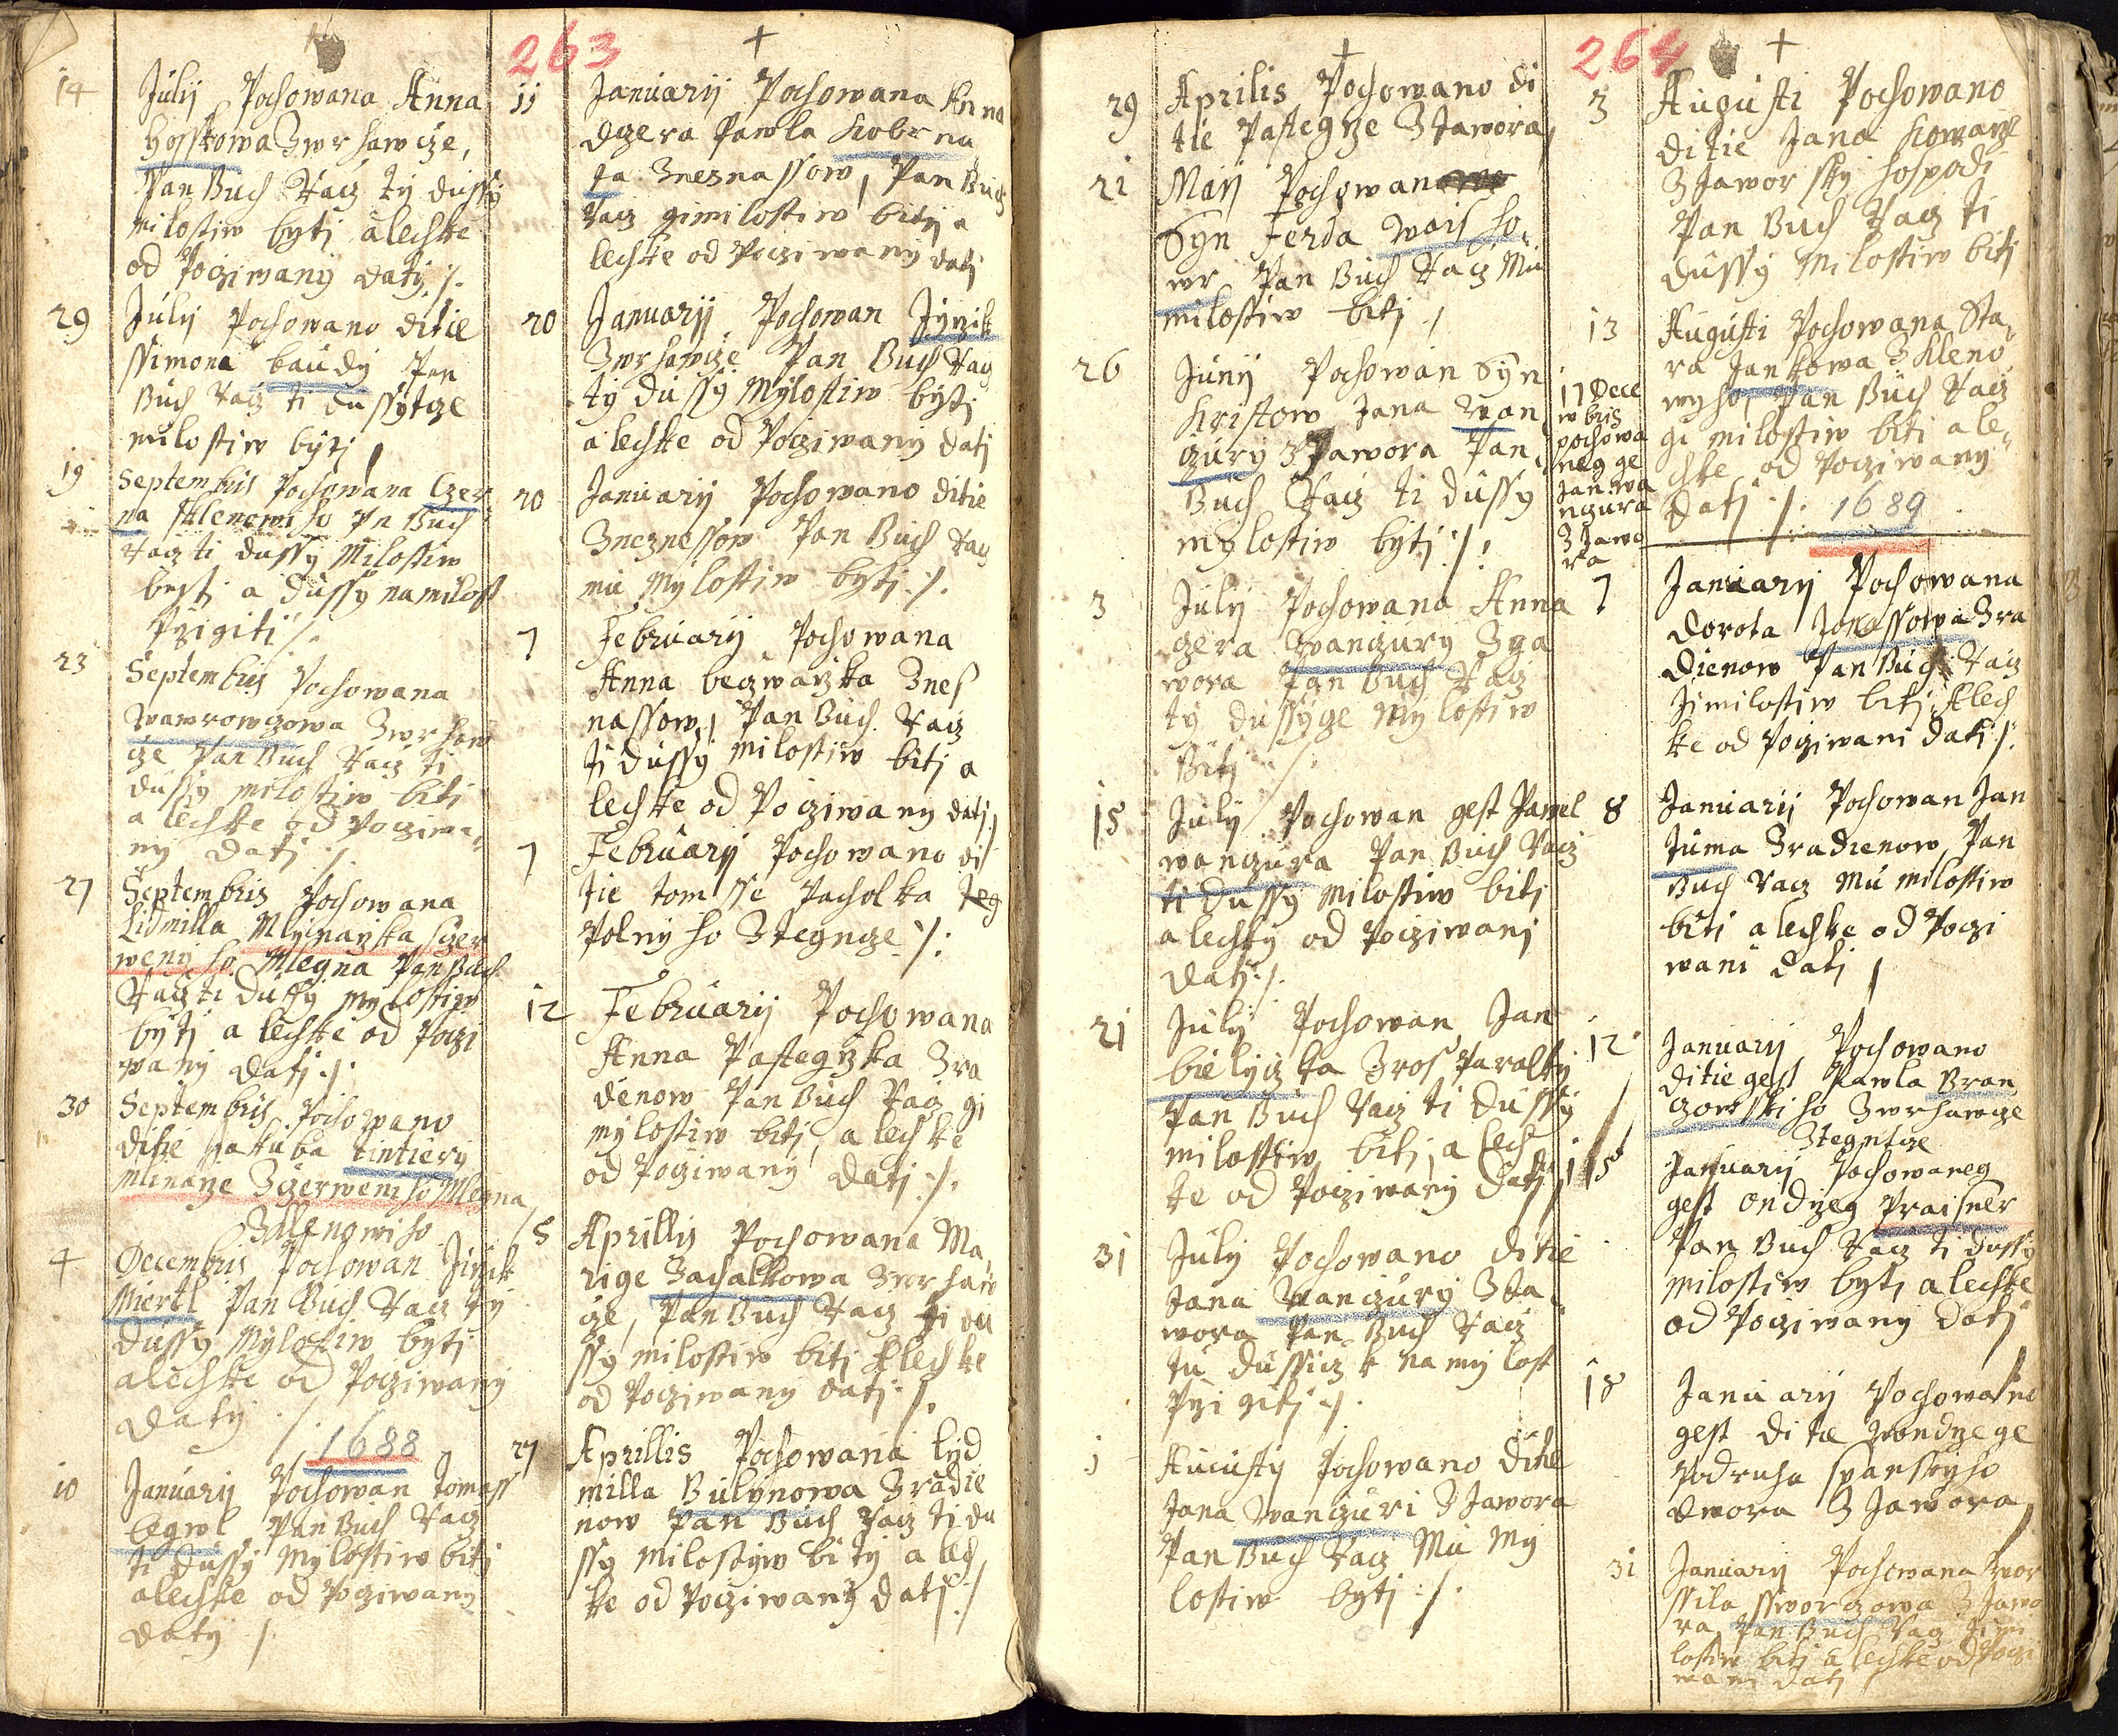 263
14 Julij Pochowana Anna
hosskowa Zwrhawicze,
Pan Buch Racz ty dussy
milostiw byti a lechke
od Pocziwanij datj ./.
29 Julij Pochowano ditie
ssimona baudy Pan
Buch Racz ti dussytze
milostiw bytj
19 Septembris Pochowana Czer
na sklenowiho Pn Buch
Racz ti dussy Milostiw
bytj a dussy na milost
Przigiti ./.
23 Septembris Pochowana
Wawrowczowa Zwrhaw
cze Pan Buch Racz ti
dussy milostiw biti
a lechke od Pocziwa
ny datj ./.
27 Septembris Pochowana
Lidmilla Mlynarzka sczer
wenyho Mlegna Pan Buch
Racz ti dussy mylostiw
bytj a lechke od Poczi
wany datj ./.
30 Septembris Pochowano
ditie Jakuba tintiery
mlinarze Zczerweniho Mlegna
Zklenowiho
4 Decembris Pochowan Jirzik
Miertl Pan Buch Racz ty
dussy Mylostiw bytj
a lechke od Pocziwany
daty ./.
1688
10 Januarij Pochowan tomass
legwl Pan Buch Racz
ti dussy Mylostiw bitj
a lechke od Pocziwany
daty ./.
11 Januarij Pochowana Anna
dczera Pawla Kobrna
ta Znesnassow, Pan Buch
Racz gi milostiw bitj a
lechke od Pocziwany datj
20 Januarij Pochowan Jirzik
Zwrhawcze Pan Buch Racz
ty dussy Mylostiw bytj
a lechke od Pocziwany datj
20 Januarij Pochowano ditie
Zneznessow Pan Buch Racz
mu Mylostiw bytj ./.
7 Februarij Pochowana
Anna beczwarzka Znes
nassow, Pan Buch Racz
ti dussy milostiw bitj a
lechke od Pocziwany datj
7 Februarij Pochowano di
tie tomsse Pacholka
Polnyho Ztegncze ./.
12 Februarij Pochowana
Anna Pastegrzka Zra
dienow Pan Buch Racz gi
mylostiw bitj, a lechke
od Pocziwany datj ./.
5 Aprillis Pochowana Ma
rige Zachalkowa Zwrhaw
cze, Pan Buch Racz ti du
ssy milostiw bitj Alechke
od Pocziwany datj ./.
27 Aprillis Pochowana lyd
milla Bulynowa Zradie
now Pan Buch Racz ti du
ssy milostyw bity a lech
ke od Pocziwany datj ./.
264
29 Aprilis Pochowano di
tie Pastegrze ZJawora
21 Maij Pochowan
Syn Ferda
wr Pan Buch Racz Mu
milostiw bitj ./
26 Junij Pochowan Syn
Kristow Jana Wan
czury ZJawora Pan
Buch Racz ti dussy
mylostiw bytj ./.
3 Julij Pochowana Anna
czera Wanczury ZJa
wora Pan Buch Racz
ty dussyge Mylostiw
Bitj ./.
15 Julij Pochowan gest Pawel
wanczura Pan Buch Racz
ti dussy Milostiw biti
a lechky od Pocziwanj
datj ./.
21 Julij Pochowan Jan
bielyczka Zros Paralky
Pan Buch Racz ti dussy
milostiw bitj, a lech
ke od Pocziwany datj
31 Julij Pochowano ditie
Jana Wanczury ZJa
wora Pan Buch Racz
tu dussiczk na mylost
Przi gitj ./.
1 Augusty Pochowano ditie
Jana Wanczuri ZJawora
Pan Buch Racz Mu My
lostiw bytj ./.
17 Dece
mbris
pochowa
neg ge
Jan wa
nczura
ZJawo
ra
3 Augusti Pochowano
ditie Jana Kowarze
ZJaworsky hospodi
Pan Buch Racz ti
dussy Milostiw bitj
13 Augusti Pochowana Sta
ra Jankowa Zkleno
wyho, Pan Buch Racz
gi milostiw biti a le
chke od Pocziwany
datj ./. 1689
7 Januarij Pochowana
dorota Jonassowa Zra
dienow Pan Buch Racz
Ji milostiw bitj Alech
ke od Pocziwani datj ./.
8 Januarij Pochowan Jan
tuma Zradienow, Pan
Buch Racz mu milostiw
biti a lechke od Poczi
wani datj
12 Januarij Pochowano
ditie gest Pawla Bran
zowskiho Zwrhawcze
Ztegntze
15 Januarij Pochowaneg
gest ondrzeg Praisner
Pan Buch Racz ti dussy
milostiw bytj a lechke
od Pocziwany datj
18 Januarij Pochowano
gest ditie Wondrzege
Podruha spanskyho
dwora ZJawora
31 Januarij Pochowana Wor
ssila sswarzowa ZJawo
ra, Pan Buch Racz Ji mi
lostiw bitj a lechke od Poczi
wani datj